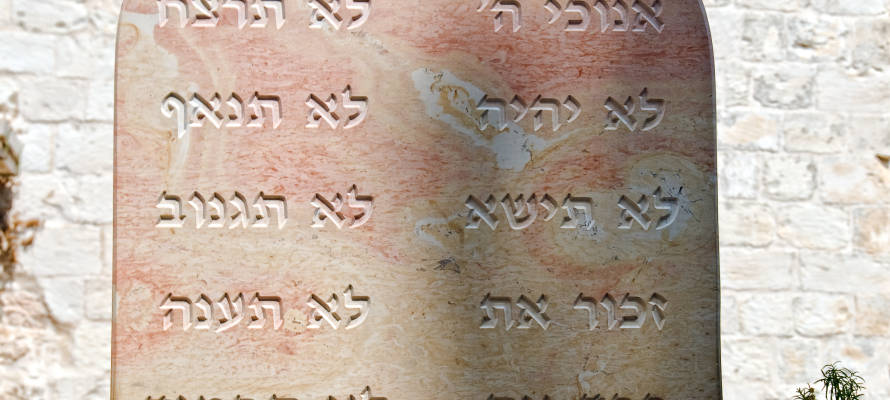 אנוכי ה׳
לא יהיה
לא תישא
זכור את
לא תרצח
לא תנאף
לא תגנוב
לא תענה